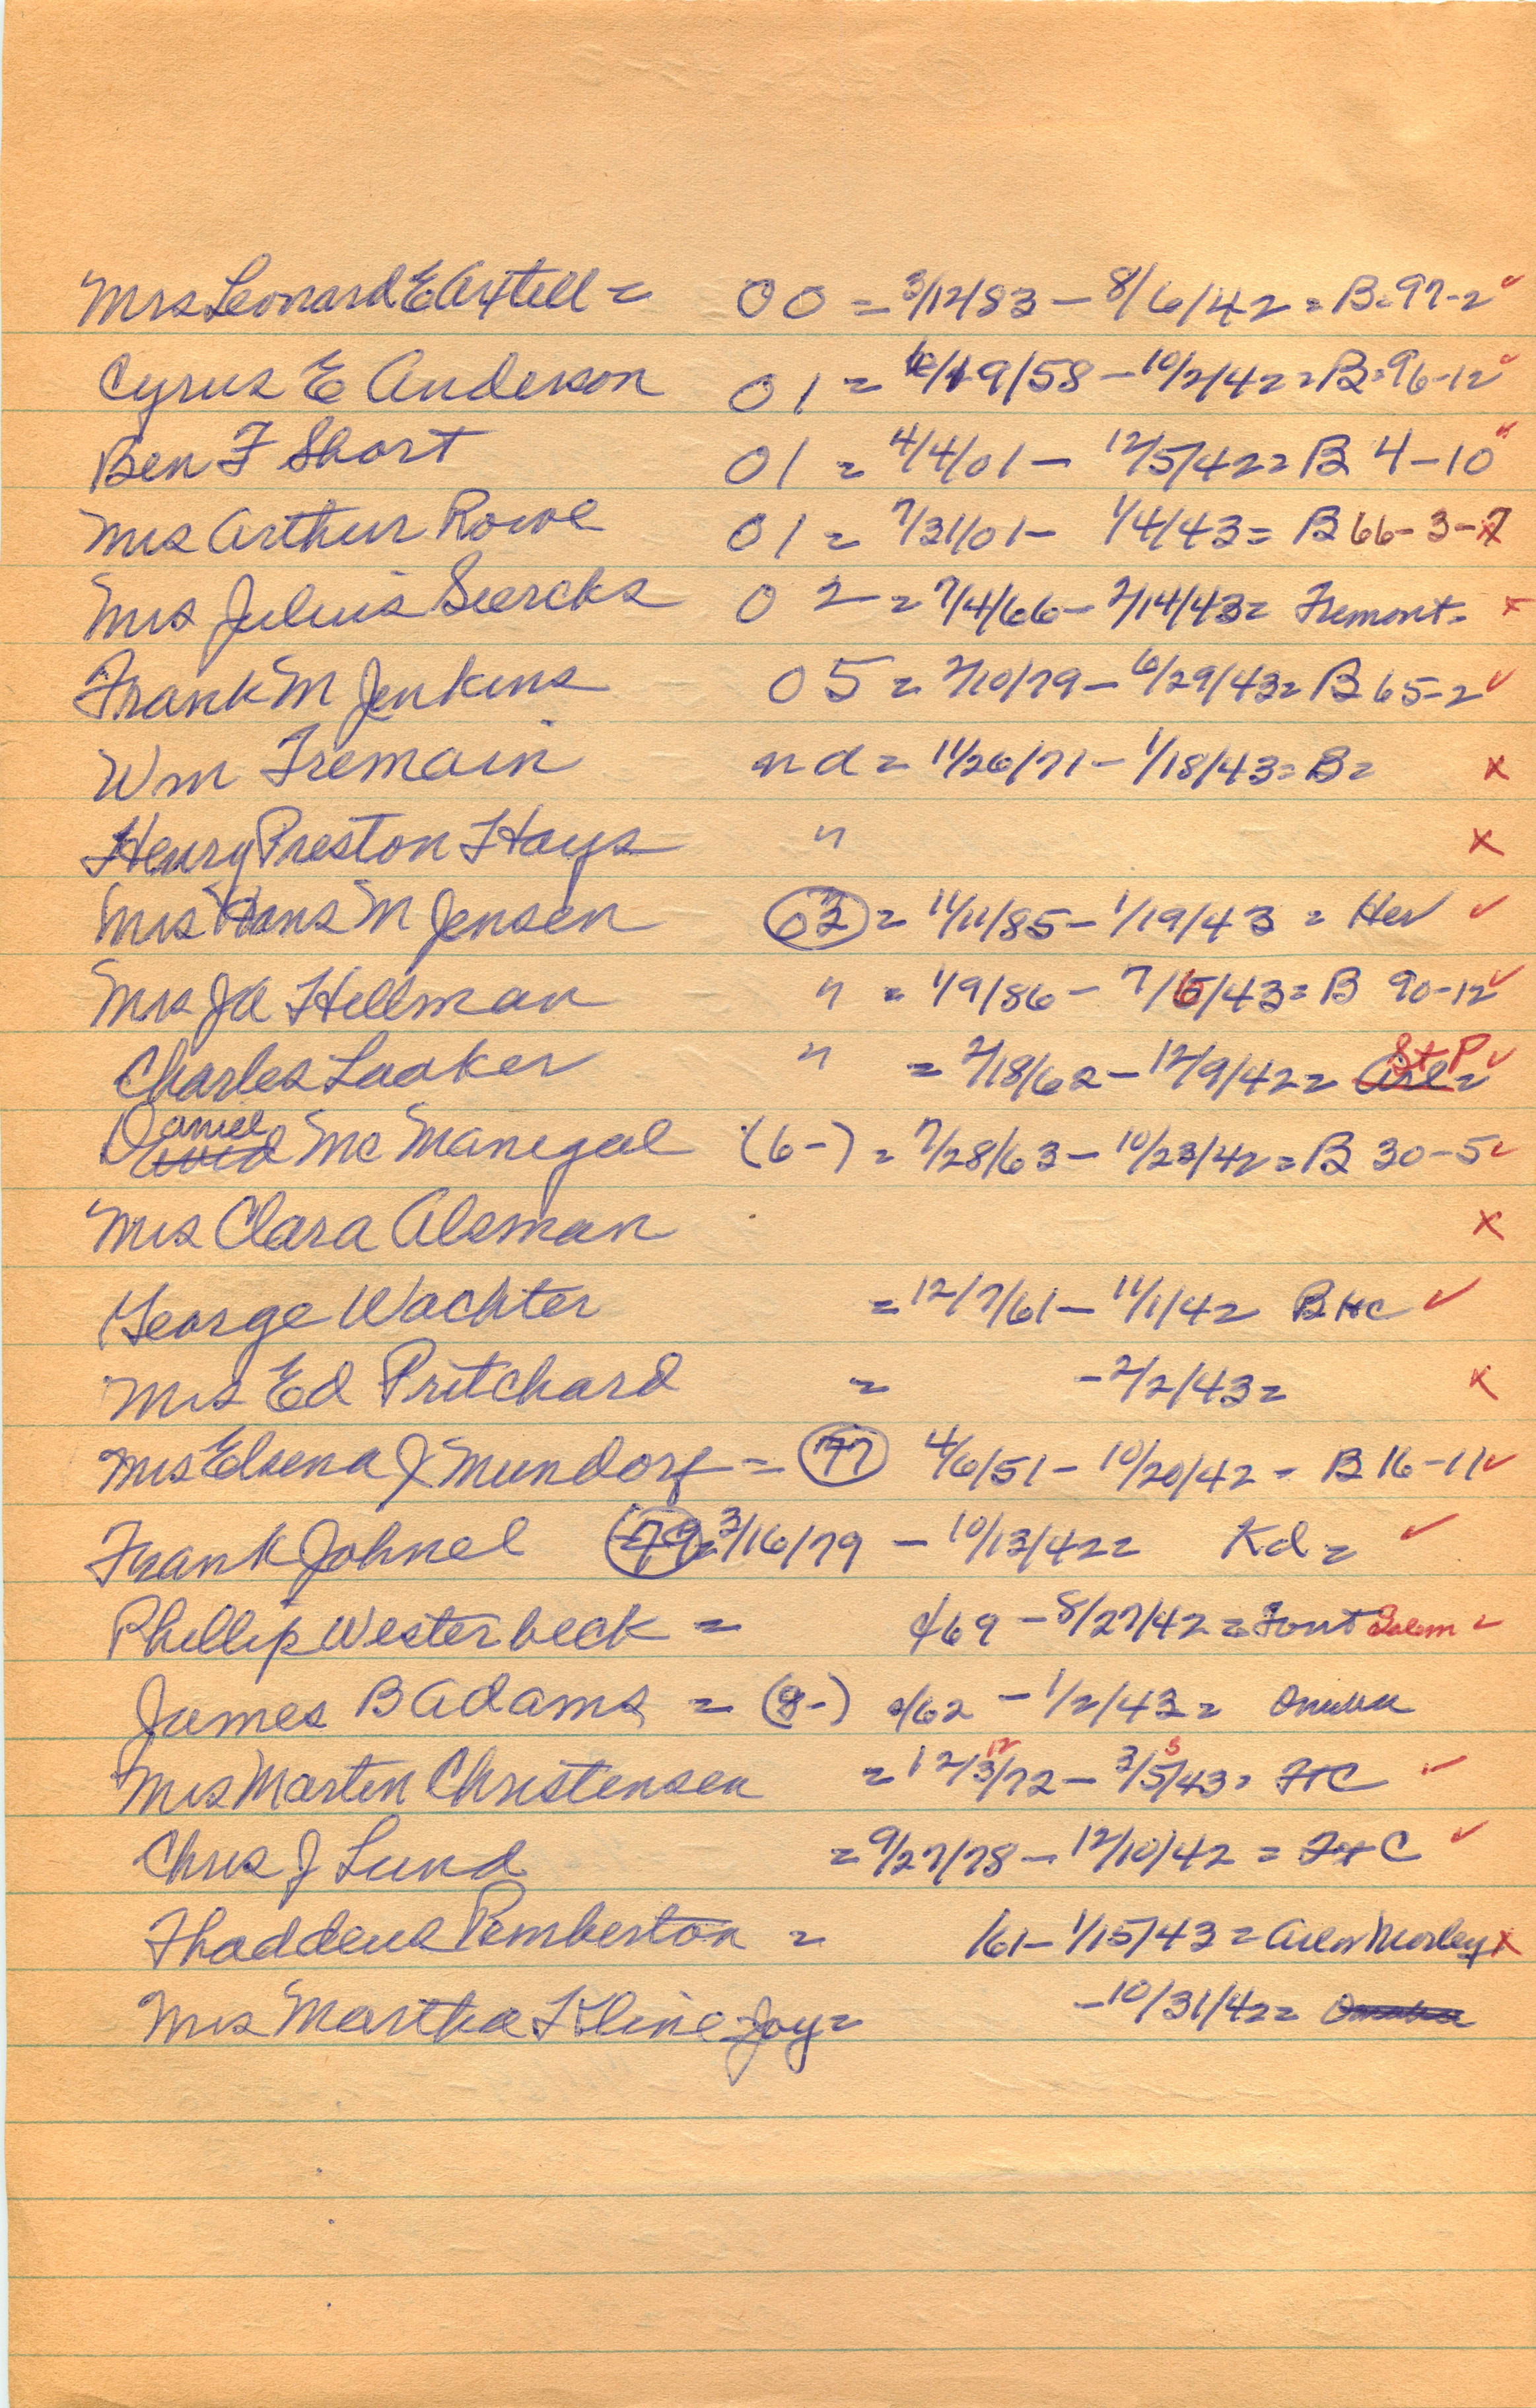 Mrs Leonard E Axtell = 00 = 3/12/83 - 8/6/42 = B = 97-2 ✓
Cyrus E Anderson 01 = 10/19/58 - 10/2/42 = B = 96-12 ✓
Ben F Short 01 = 4/4/01 - 12/5/42 = B 4-10 ✓
Mrs Arthur Rowe 01 = 7/31/01 - 1/4/43 = B 66-3-7
Mrs Julius Siercks 02 = 7/4/66 - 2/14/43 = Fremont = x
Frank M Jenkins 05 = 2/10/79 - 6/29/43 = B 65-2 ✓
Wm Fremain nd = 11/26/71 - 1/18/43 = B = x
Henry Preston Hays " x
Mrs Hans M Jensen 03 = 11/11/85 - 1/19/43 = Her ✓
Mrs JA Hillman " = 1/9/86 - 7/6/43 = B 90-12 ✓
Charles Laaker " = 2/18/62 - 12/9/42 = St P ✓
Daniel Mc Manigal (6-) = 7/28/63 - 10/23/42 = B 30-5 ✓
Mrs Clara Aleman x
George Wachter = 12/7/61 - 11/1/42 B HC ✓
Mrs Ed Pritchard = - 2/2/43 = x
Mrs Elvena J Mundorf = 77 4/6/51 - 10/20/42 - B 16-11 ✓
Frank Johnel 79 = 3/16/79 - 10/13/42 = Kd = ✓
Phillip Westerbeck = /69 - 8/27/42 = Font Salem ✓
James B Adams = (8-) /62 - 1/2/43 = Omaha
Mrs Marten Christensen = 12/3/72 - 3/5/43 = FtC ✓
Chris J Lund = 9/27/78 - 12/10/42 = Ft C ✓
Thaddeus Pemberton = /61 - 1/15/43 = Morley x
Mrs Martha Kline Joy = - 10/31/42 = Omaha